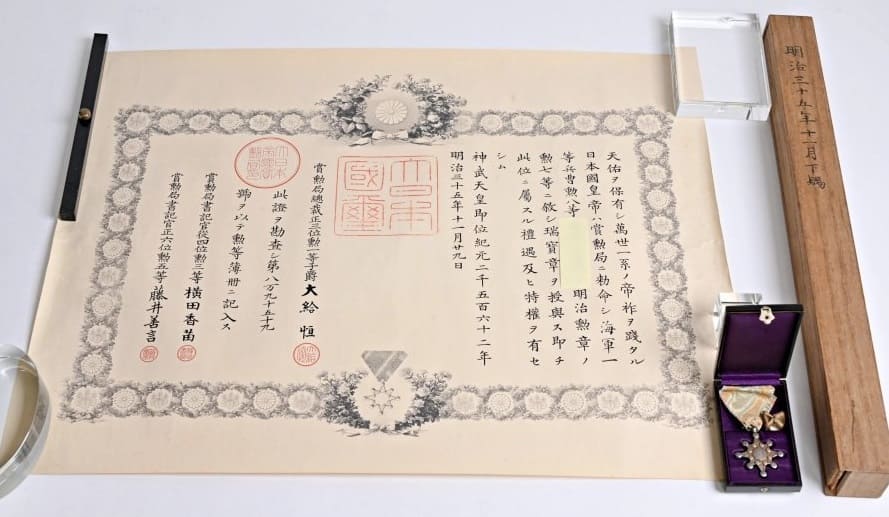 天佑ヲ保有シ萬世一系ノ帝祚ヲ踐タル
日本國皇帝ハ賞勲局ニ勅命シ海軍一
等兵曹勲八等
明治勲章ノ
勲七等ニ敘シ瑞寶章ヲ授與ス即チ
此位ニ屬スル禮遇及ヒ特權ヲ有セ
シム
神武天皇即位紀元二千五百六十二年
明治三十五年十一月廿九日
大日本
國璽
賞勲局總裁正三位勲一等子爵大給恒
此證ヲ勘査シ第八万九千五十九
號ヲ以テ勲等簿冊ニ記入ス
賞勲局書記官從四位勲三等横田香苗
賞勲局書記官正六位勲五等藤井善言
明治三十五年十一月下賜